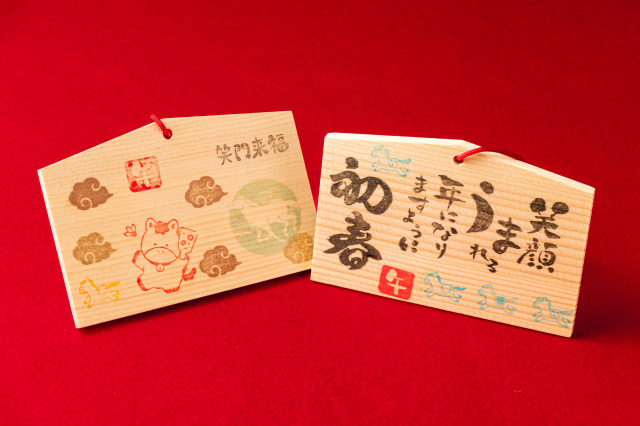 笑門来福
笑顔
うまれる
年になり
ますように
初春
午